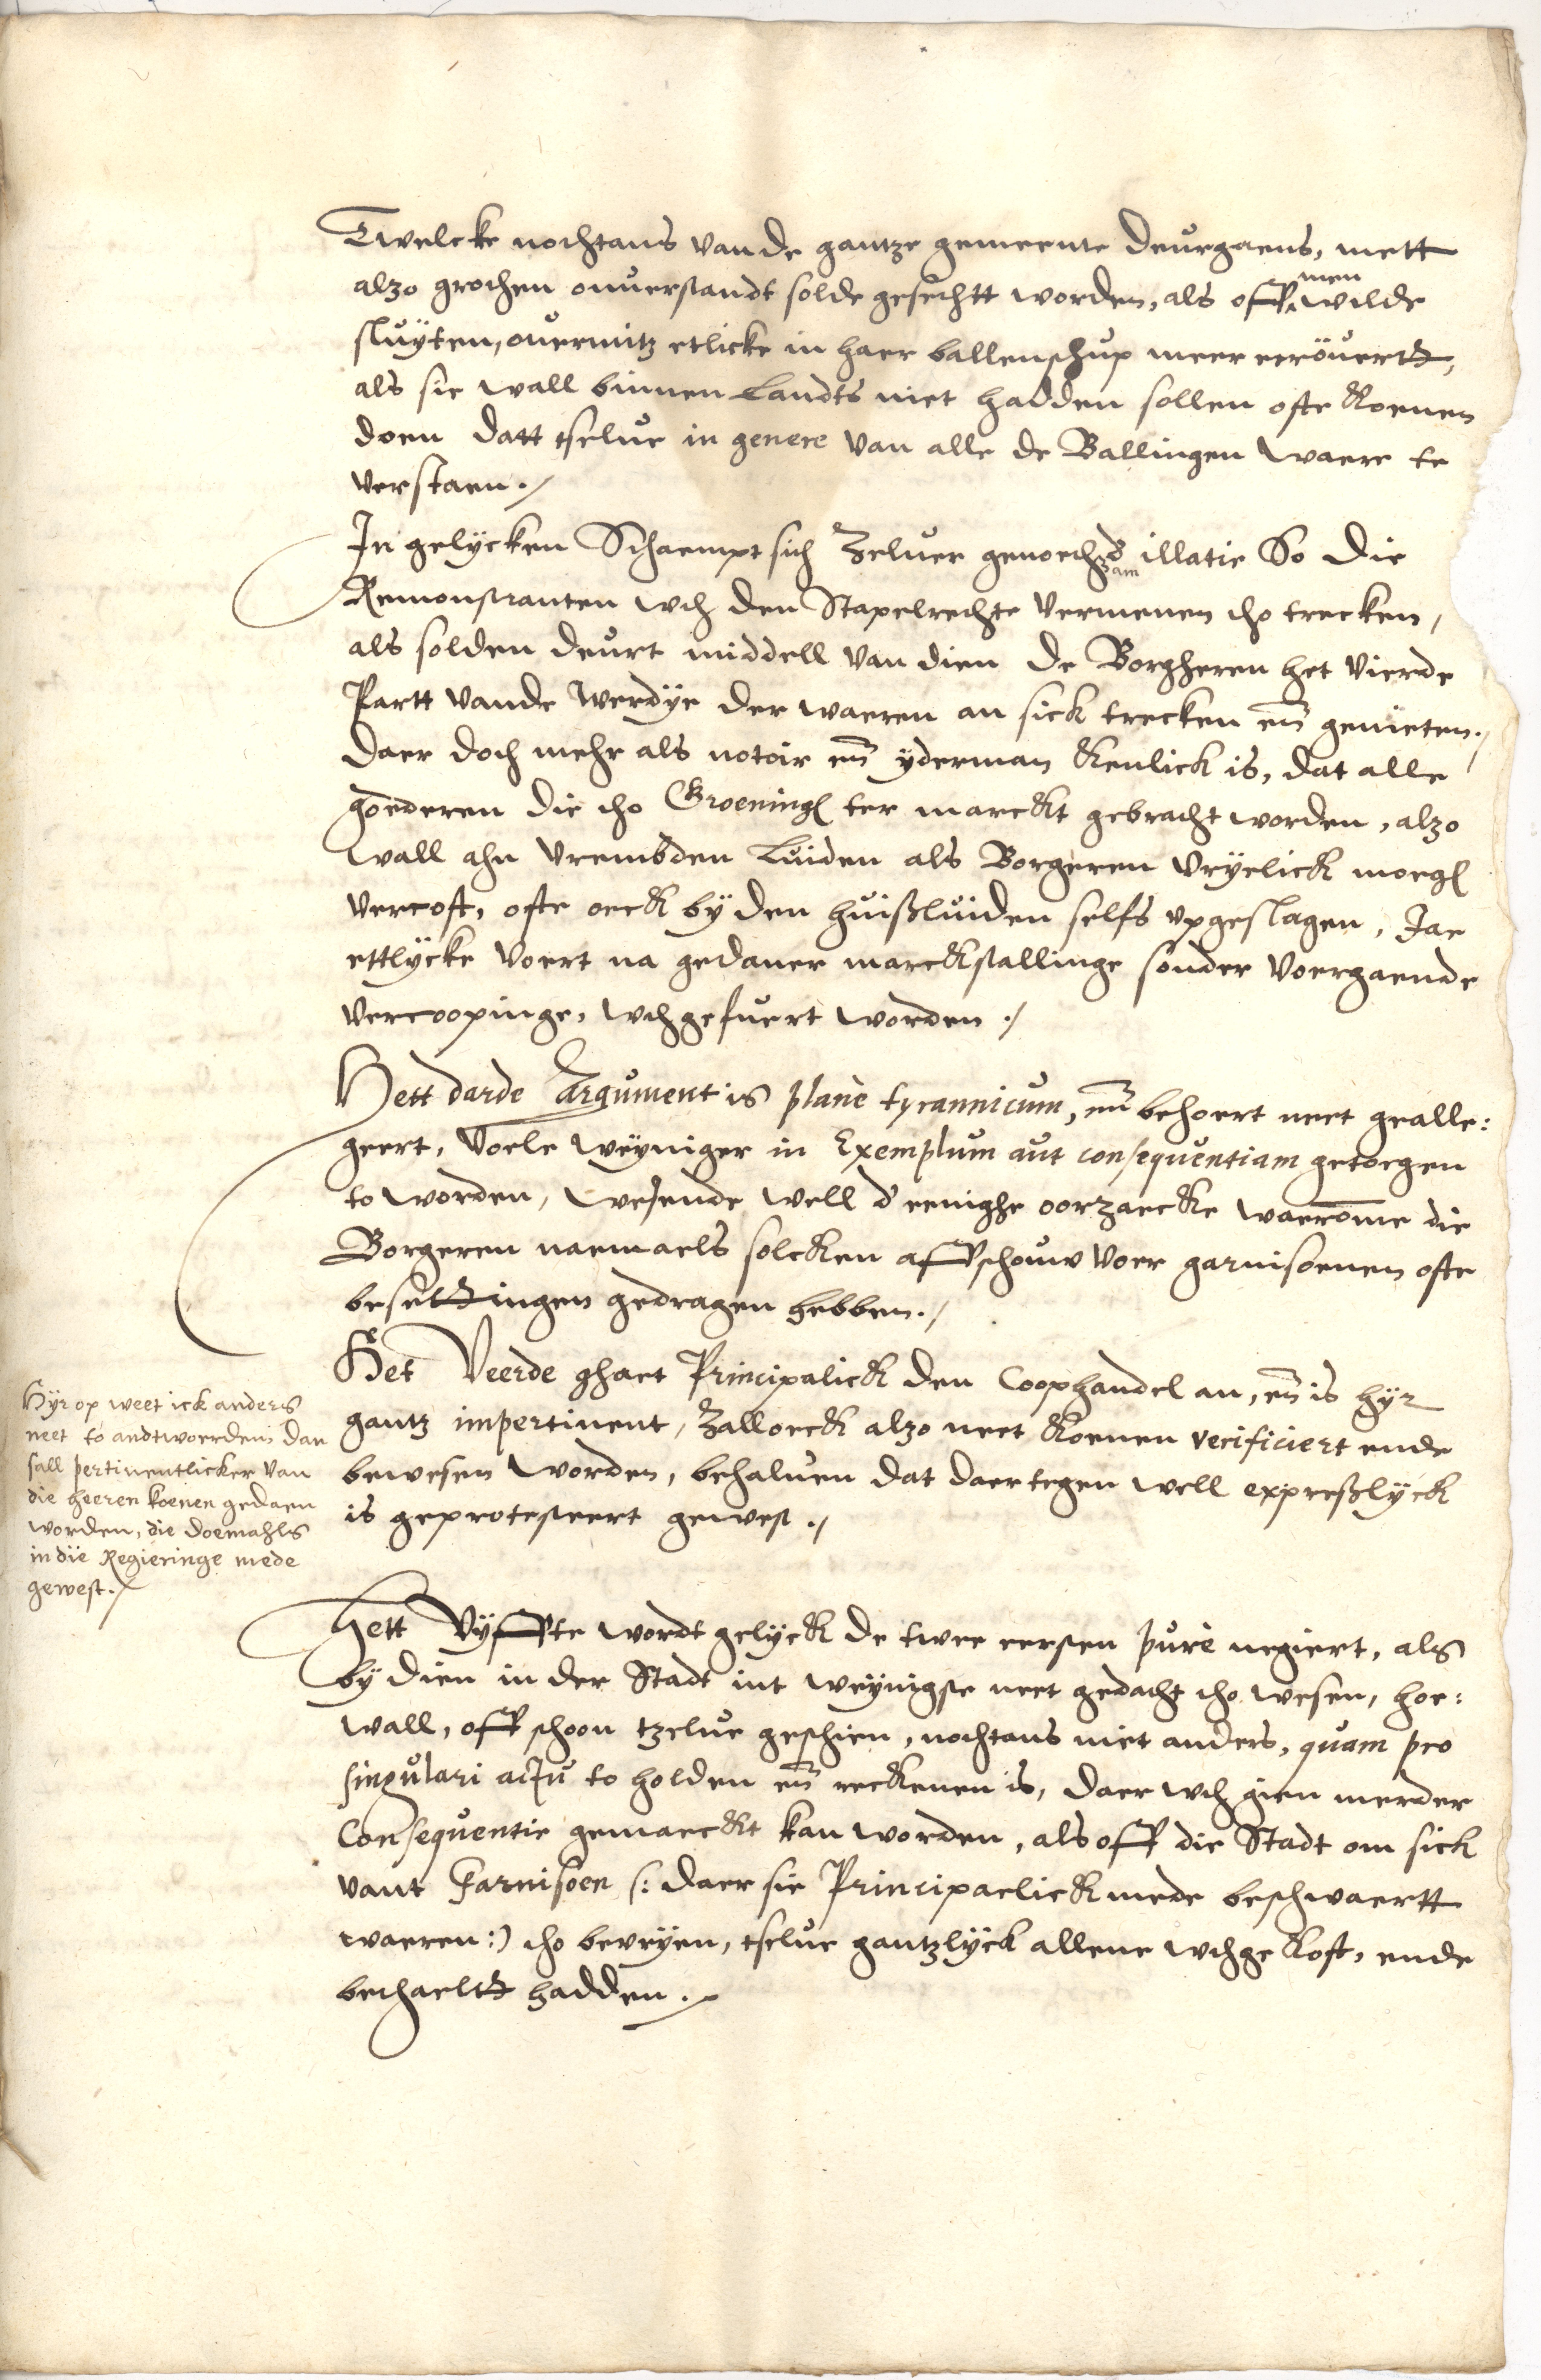 Twelcke nochtans van de gantze gemeente deurgaens, mett
alzo grothen onuerstandt solde gesechtt worden, als off men wilde
sluÿten, ouermitz etlicke in haer ballenschup meer eröuertt,
als sie wall binnen Landts niet hadden sollen ofte koenen
doen datt tselue in genere van alle de Ballingen waere te
verstaen ./
In gelÿcken Schaempt sich Zeluer genoechzam d' illatie So die
Remonstranten wth den Stapelrechte vermenen tho trecken,
als solden deurt middell van dien de Borgheren het vierde
Partt vande werdÿe der waeren an sick trecken en̄ genieten ./
daer doch mehr als notoir en̄ ÿderman kenlick is, dat alle
goederen die tho Groening ter marckt gebracht worden, alzo
wall ahn vrembden Luiden als Borgeren vrÿelick moeg
vercoft, ofte oeck bÿ den huißluiden selfs vpgeslagen, Jae
ettlÿcke voert na gedaner marckstallinge sonder voergaende
vercoopinge, wthgefuert worden ./
Hett darde Argument is plane tyrannicum, en̄ behoert neet gealle:
geert, voele weÿniger in Exemplum aut consequentiam getoegen
to worden, wesende well d'eenighe oorzaecke waerom̄e die
Borgeren naemaels solcken affschouw voer garnisoenen ofte
besettingen gedragen hebben ./
Het Veerde ghaet Principalick den Coophandel an, en̄ is hÿr
gantz impertinent, Zall oeck alzo neet koenen verificiert ende
bewesen worden, behaluen dat daer tegen well expreßlÿck
is geprotesteert gewest ./
Hÿr op weet ick anders
neet to andtwoorden dan
sall pertinentlicker van
die heeren koenen gedaen
worden, die doemahls
in die Regieringe mede
gewest ./
Hett Vÿffte wordt gelÿck de twee eersten purè negiert, als
bÿ dien in der Stadt int weÿnigste neet gedacht tho wesen, hoe:
wall, off schoon tzelue geschien, nochtans niet anders, quam pro
singulari actu to holden en̄ reckenen is, daer wth gien merder
Consequentie gemaeckt kan worden, als off die Stadt om sick
vant Garnisoen (: daer sie Principaelick mede beschwaertt
waeren :) tho bevrÿen, tselue gantzlÿck allene wthgekoft, ende
bethaeltt hadden ./